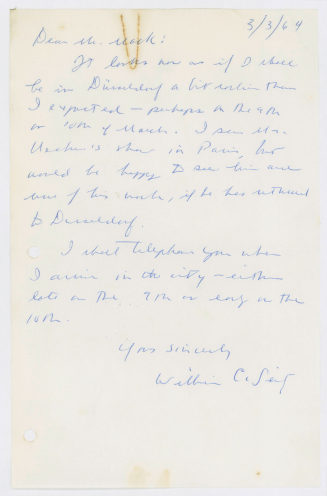 3/3/64
Dear Mr. Mack:
It looks now as if I shall
be in Düsseldorf a bit earlier than
I expected – perhaps on the 9th
or 10th of March. I saw Mr.
show in Paris, but
would be happy to see him and
more of his work, if he has returned
to Dusseldorf.
I shall telephone you when
I arrive in the city – either
late on the 9th or early on the
10th.
Yours sincerely
William C. Seitz